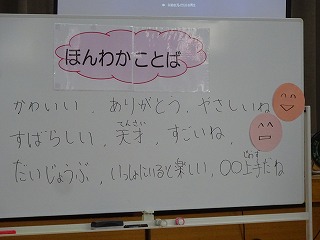 ほんわかことば
かわいい、ありがとう、やさしいね
すばらしい、天才、すごいね、
だいじょうぶ、いっしょにいると楽しい、〇〇上手だね